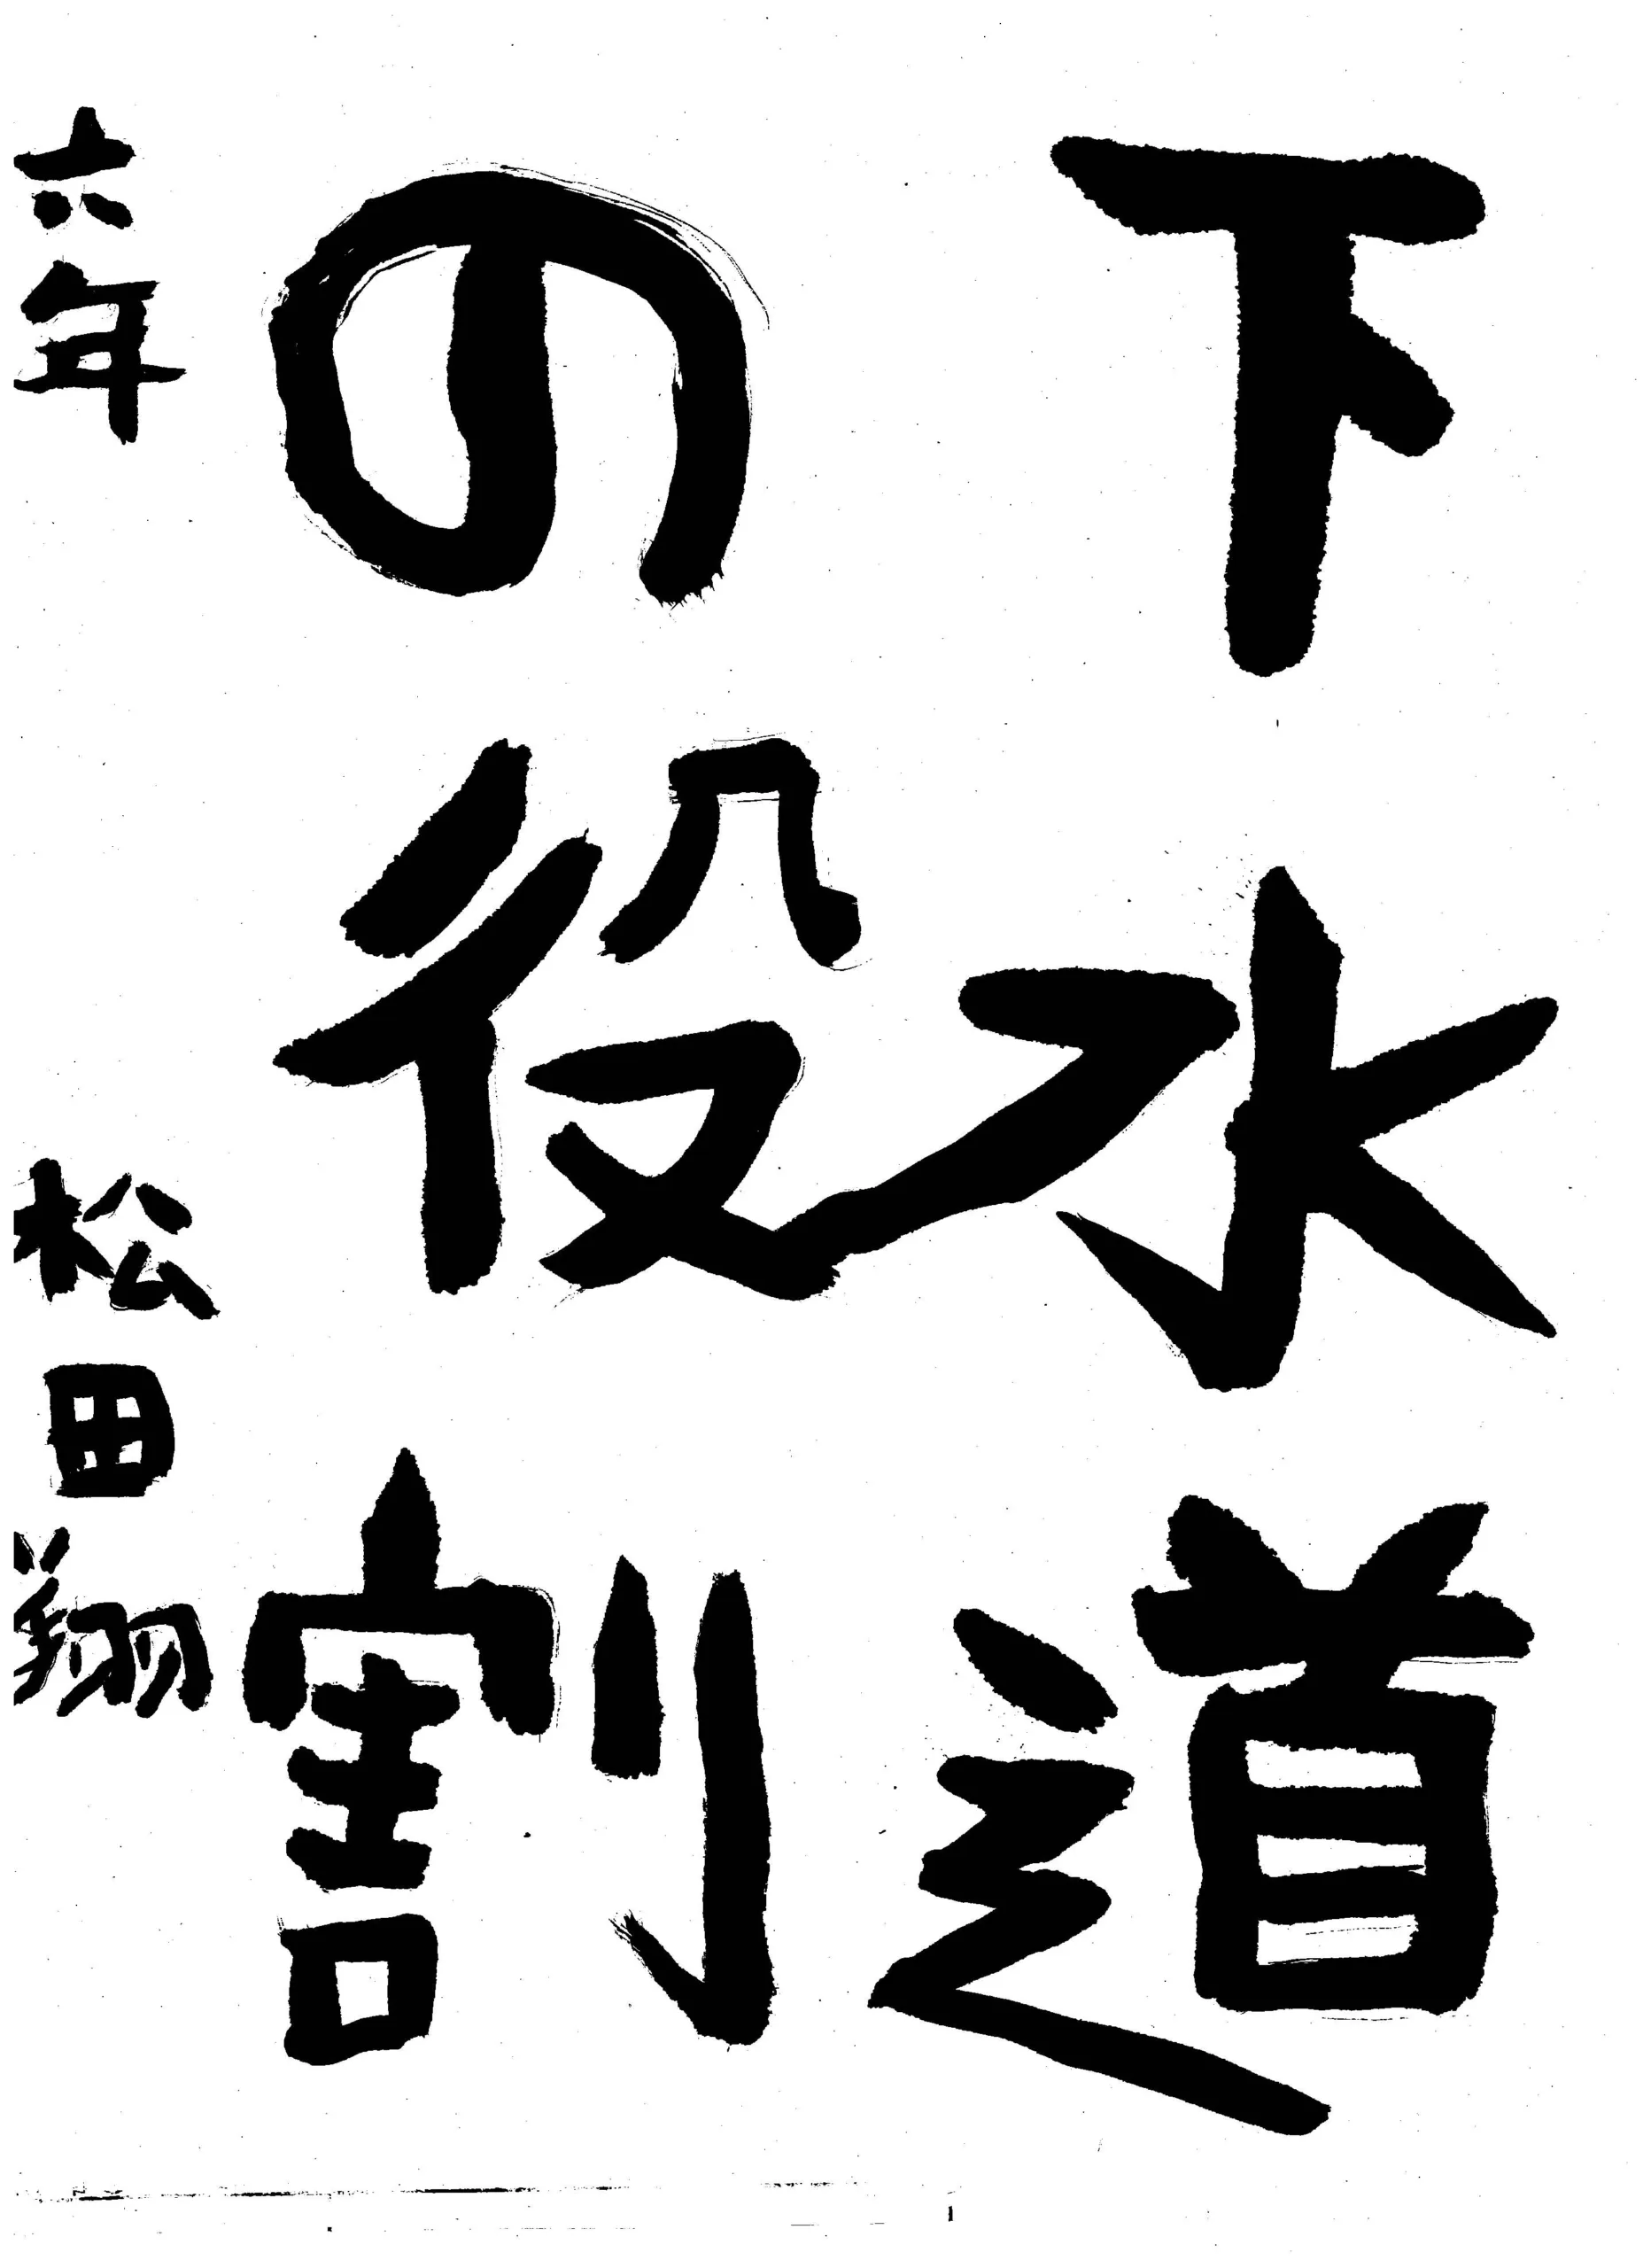 下水道
の役割
六年 松田翔